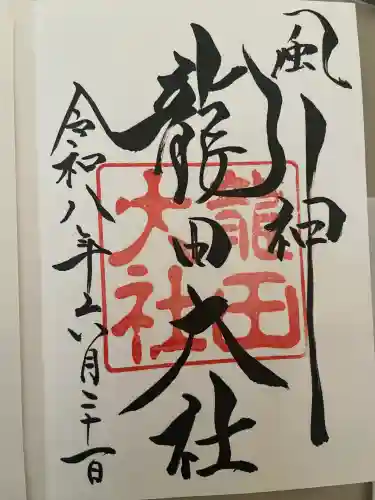 風神
龍田大社
龍田
大社
令和八年二月二十一日